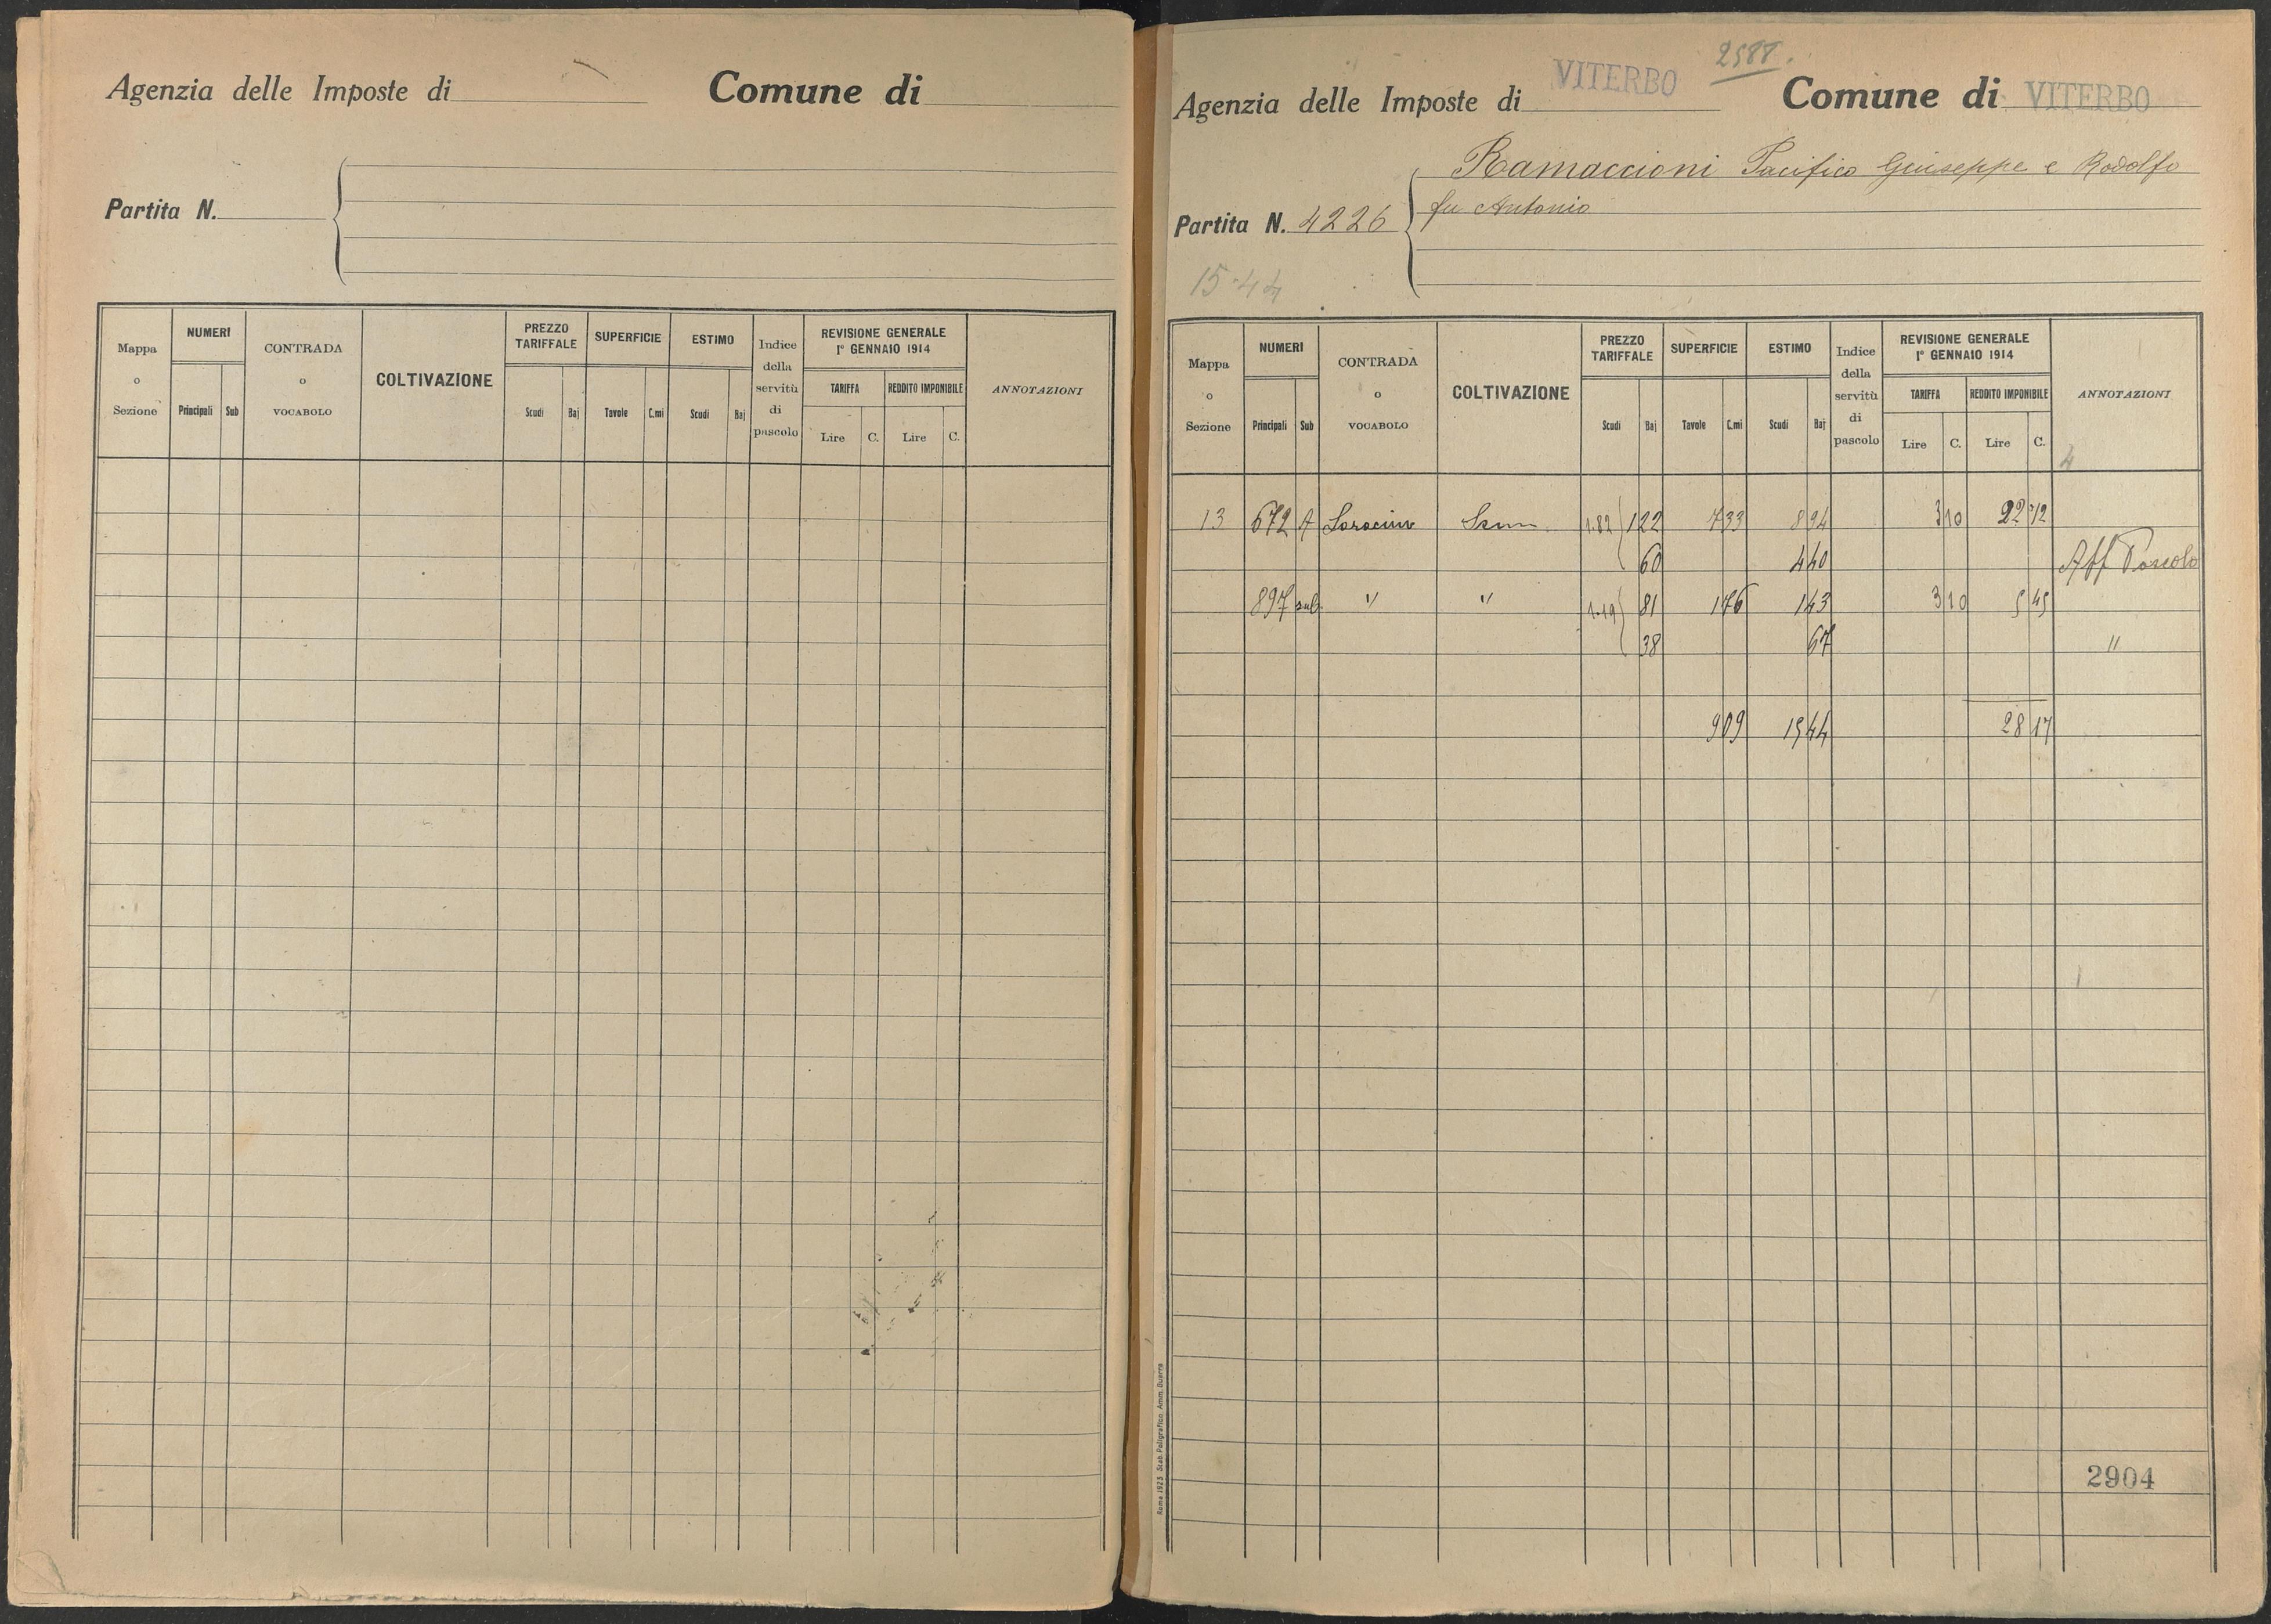 Agenzia delle Imposte di
Comune di
Partita N.
Mappa o Sezione
NUMERI
Principali Sub
CONTRADA o VOCABOLO
COLTIVAZIONE
PREZZO TARIFFALE
Scudi Baj
SUPERFICIE
Tavole C.mi
ESTIMO
Scudi Baj
Indice della servitù di pascolo
REVISIONE GENERALE
1° GENNAIO 1914
TARIFFA REDDITO IMPONIBILE
Lire C. Lire C.
ANNOTAZIONI
2588.
Agenzia delle Imposte di VITERBO Comune di VITERBO
Ramaccioni Pacifico Giuseppe e Rodolfo
fu Antonio
Partita N. 4226
15.44
Mappa o Sezione
NUMERI
Principali Sub
CONTRADA o VOCABOLO
COLTIVAZIONE
PREZZO TARIFFALE
Scudi Baj
SUPERFICIE
Tavole C.mi
ESTIMO
Scudi Baj
Indice della servitù di pascolo
REVISIONE GENERALE
1° GENNAIO 1914
TARIFFA REDDITO IMPONIBILE
Lire C. Lire C.
ANNOTAZIONI
4
13 672 A 1.82 1 22 7 33 8 94 3 10 22 72
60 4 40 Aff Pascolo
897 sub. " " 1.19 81 1 76 1 43 3 10 5 45
38 67 "
9 09 15 44 28 17
2904
Roma 1923 Stab. Poligrafico Amm. Guerra